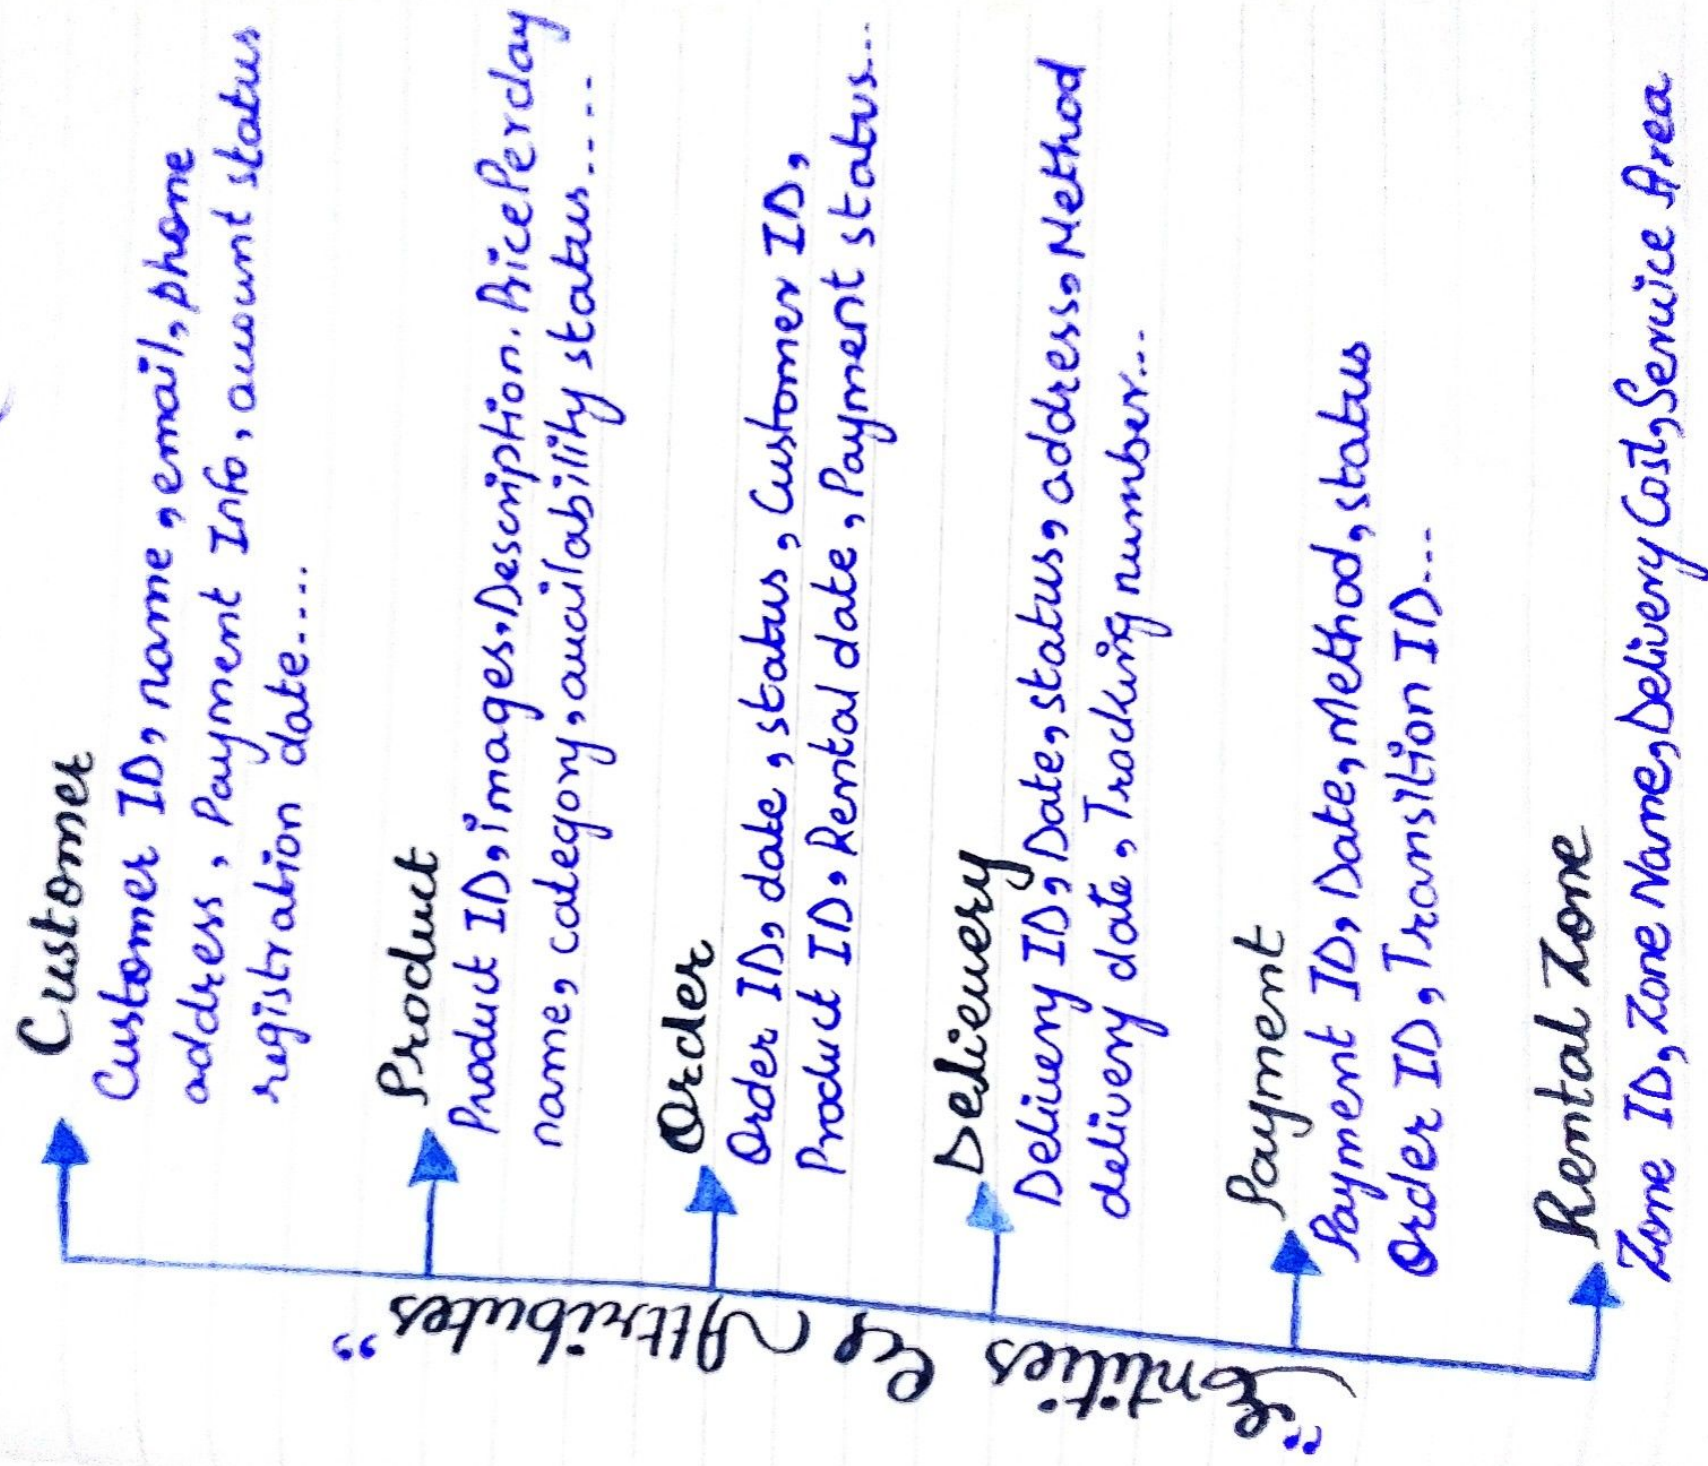 "Entities & Attributes"
Customer
Customer ID, name, email, phone
address, Payment Info, account status
registration date....
Product
Product ID, images, Description. PricePerday
name, category, availability status.....
Order
Order ID, date, status, Customer ID,
Product ID, Rental date, Payment status...
Delievery
Delivery ID, Date, status, address, Method
delivery date, Tracking number...
Payment
Payment ID, Date, Method, status
Order ID, Transition ID...
Rental Zone
Zone ID, Zone Name, Delivery Cost, Service Area